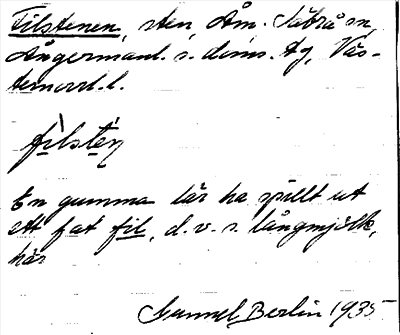 Filstenen, sten, Åm. Säbrå sn,
Ångermanl. s. doms. tg, Väs-
ternorrl. l.
fìlstén
En gumma lär ha spillt ut
ett fat fil, d. v. s. långmjölk,
här
Samuel Berlin 1935